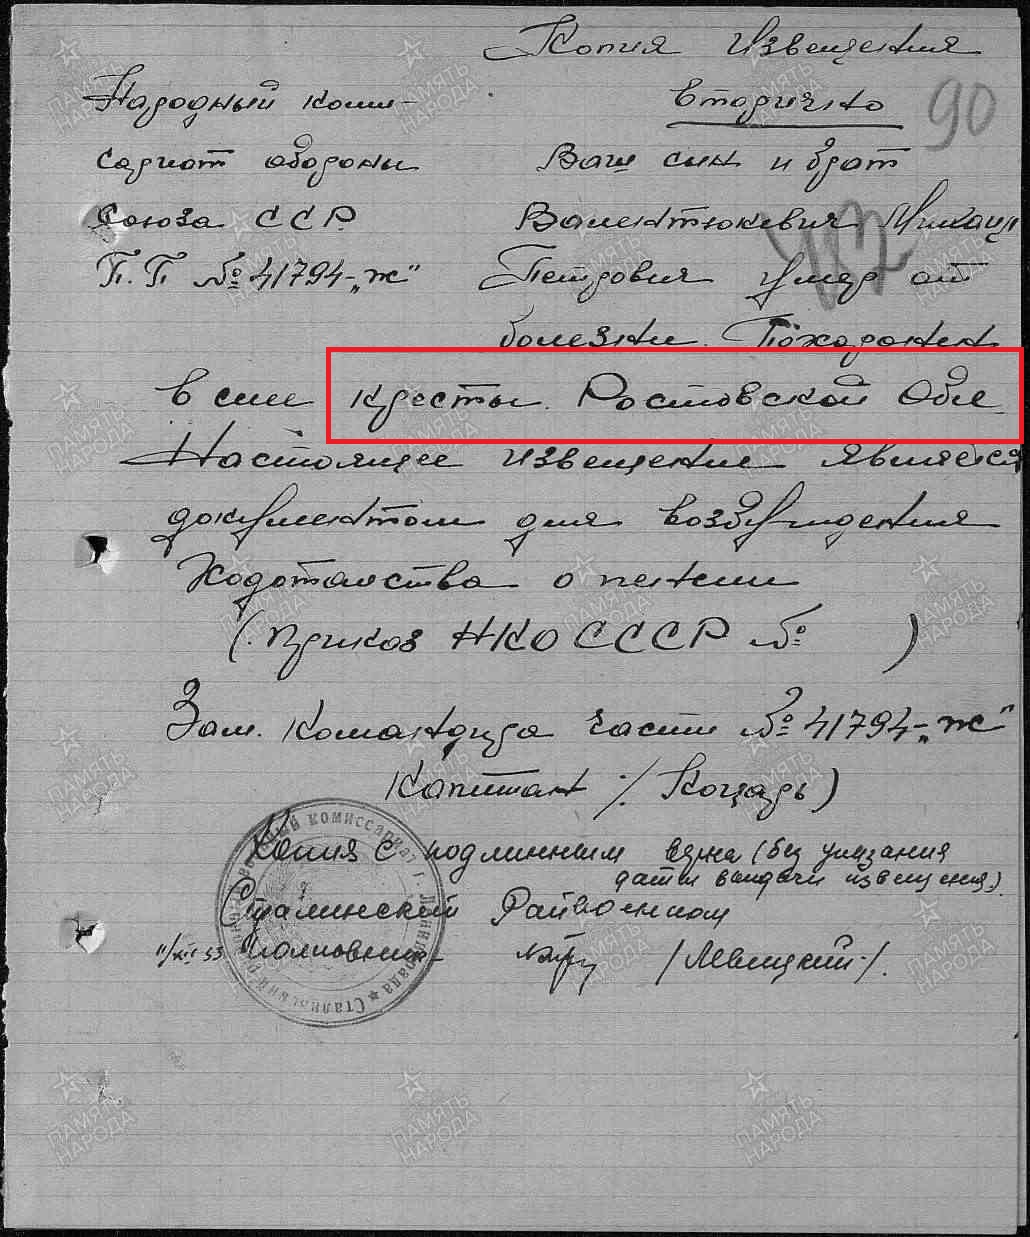 Копия Извещения
Народный коми-
Вторично
90
сариат обороны
Ваш сын и брат
Союза ССР
Валентюкевич Михаил
П.П № 41794-„ж"
Петрович умер от
болезни. Похоронен
в селе Кресты. Ростовской Обл.
Настоящее извещение является
документом для возбуждения
Ходотайства о пенсии
(приказ НКО СССР № )
Зам. Командира части № 41794-„ж"
Капитан /. Кощадь)
Копия с подлинным верна (без указания
даты выдачи извещения.)
Сталинский Райвоенком
11/XII 53 Полковник /Левицкий/.
ПАМЯТЬ
НАРОДА